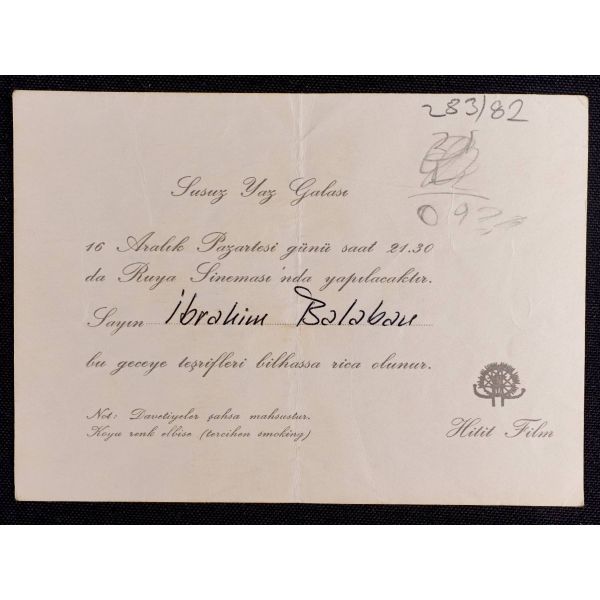 283/82
Susuz Yaz Galası
16 Aralık Pazartesi günü saat 21.30
da Ruya Sineması'nda yapılacaktır.
Sayın İbrahim Balaban
bu geceye teşrifleri bilhassa rica olunur.
Not: Davetiyeler şahsa mahsustur.
Koyu renk elbise (tercihen smoking)
Hitit Film